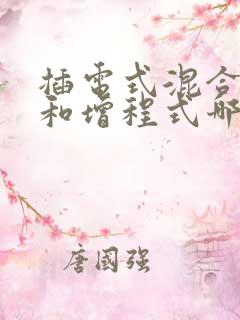 插电式混合
和增程式哪
唐國强